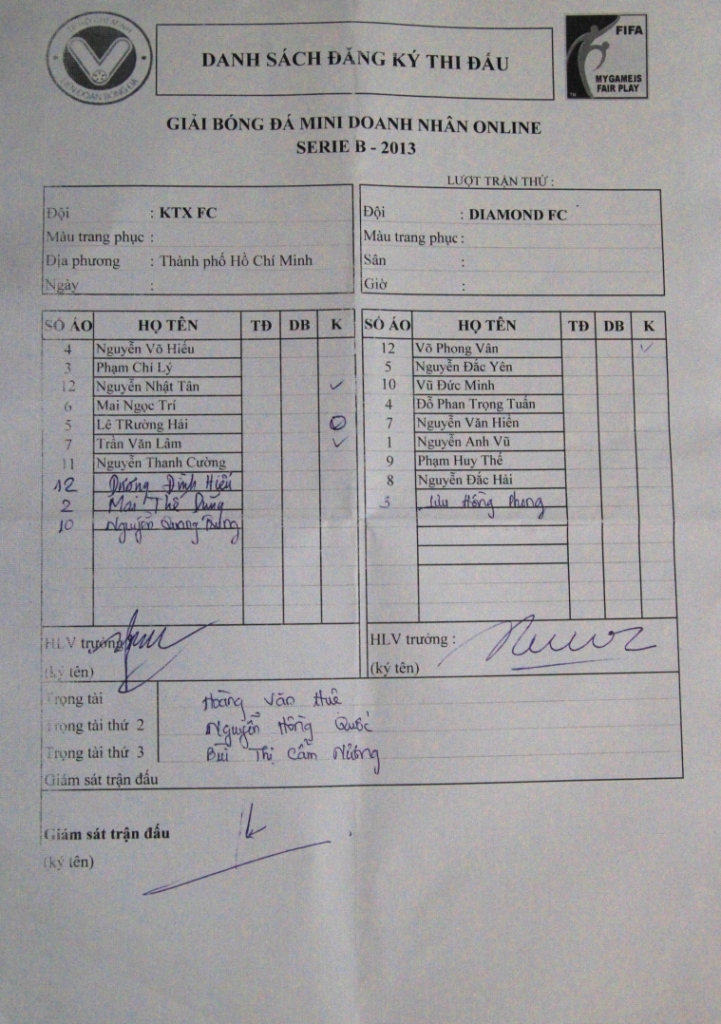 TP HỒ CHÍ MINH
LIÊN ĐOÀN BÓNG ĐÁ
DANH SÁCH ĐĂNG KÝ THI ĐẤU
FIFA
MYGAMEIS
FAIR PLAY
GIẢI BÓNG ĐÁ MINI DOANH NHÂN ONLINE
SERIE B - 2013
LƯỢT TRẬN THỨ :
Đội : KTX FC
Màu trang phục :
Địa phương : Thành phố Hồ Chí Minh
Ngày :
Đội : DIAMOND FC
Màu trang phục :
Sân :
Giờ :
SỐ ÁO HỌ TÊN TĐ DB K
4 Nguyễn Võ Hiếu
3 Phạm Chí Lý
12 Nguyễn Nhật Tân
6 Mai Ngọc Trí
5 Lê TRường Hải
7 Trần Văn Lâm
11 Nguyễn Thanh Cường
12 Dương Đình Hiếu
2 Mai Thế Dũng
10 Nguyễn Quang
SỐ ÁO HỌ TÊN TĐ DB K
12 Võ Phong Vân
5 Nguyễn Đắc Yên
10 Vũ Đức Minh
4 Đỗ Phan Trọng Tuấn
7 Nguyễn Văn Hiền
1 Nguyễn Anh Vũ
9 Phạm Huy Thế
8 Nguyễn Đắc Hải
3 Lưu Hồng Phong
HLV trưởng
(ký tên)
HLV trưởng :
(ký tên)
Trọng tài Hoàng Văn Huê
Trọng tài thứ 2 Nguyễn Hồng Quốc
Trọng tài thứ 3 Bùi Thị Cẩm Nương
Giám sát trận đấu
Giám sát trận đấu
(ký tên)